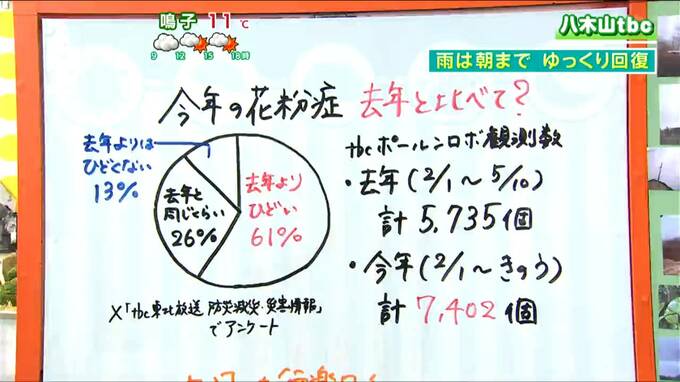 鳴子 11℃
9 12 15 18時
八木山tbc
雨は朝まで ゆっくり回復
今年の花粉症 去年と比べて?
去年よりは
ひどくない
13%
去年と
同じくらい
26%
去年より
ひどい
61%
tbcポールンロボ観測数
・去年(2/1~5/10)
計 5,735個
・今年(2/1~きのう)
計 7,402個
X「tbc東北放送 防災減災・災害情報」
でアンケート